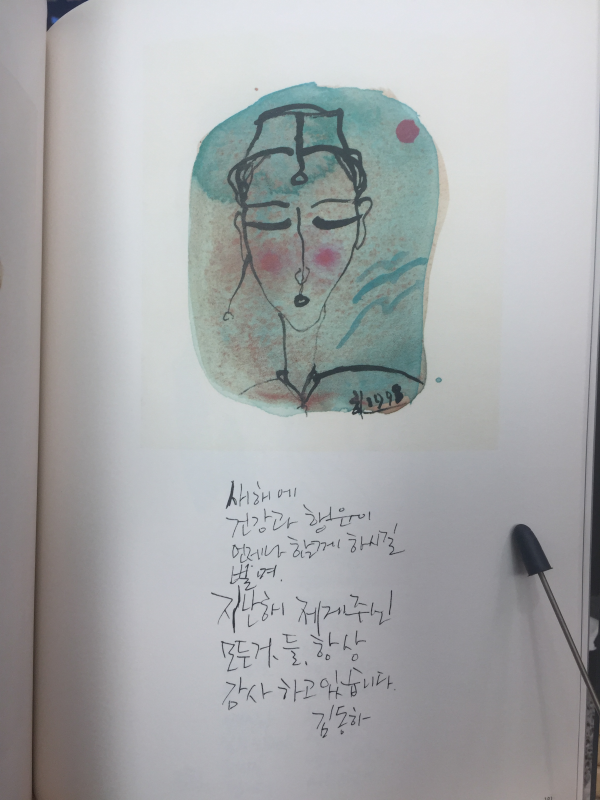 하 1998
새해에
건강과 행운이
언제나 함께 하시길
빌며.
지난해 제게 주신
모든 것들, 항상
감사 하고 있습니다.
김동하